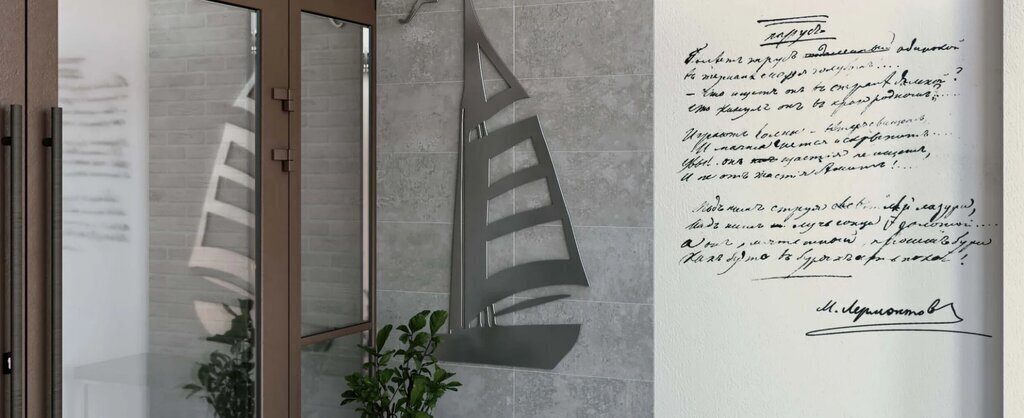 парусъ.
Бѣлѣетъ парусъ отдаленный одинокой
въ туманѣ моря голубомъ!....
— Что ищетъ онъ въ странѣ далекой?
что кинулъ онъ въ краю родномъ?....
Играютъ волны – вѣтеръ свищетъ,
И мачта гнется и скрыпитъ....
Увы! – онъ счастія не ищетъ,
И не отъ счастія бѣжитъ!...
Подъ нимъ струя свѣтлѣй лазури,
Надъ нимъ лучь солнца золотой....
а онъ, мятежный, проситъ бури,
Какъ будто въ буряхъ есть покой!
М. Лермонтов